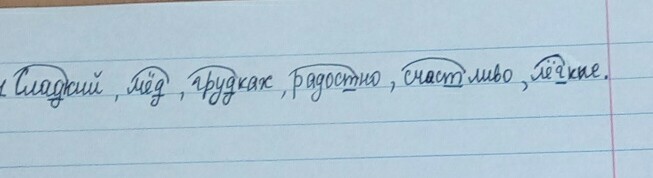 Сладкий, мёд, грудках, радостно, счастливо, лёгкие.